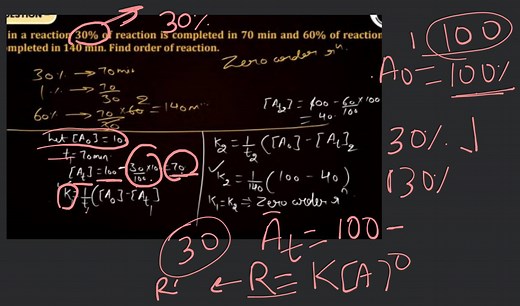 30%
in a reaction 30% of reaction is completed in 70 min and 60% of reaction
completed in 140 min. Find order of reaction.
30% → 70 min
1% → 70/30
60% → 70/30 × 60 2 = 140 min
Zero order rxn
[A]t2 = 100 - 60/100 × 100
= 40
Let [A0] = 10
t = 70 min
[At] = 100 - 30 × 10/100 = 70
K = 1/t1 ([A0] - [At]1)
K2 = 1/t2 ([A0] - [A]t2)
K2 = 1/140 (100 - 40)
K1 = K2 ⇒ Zero order rn
1 100
A0 = 100%
30% ↓
130%
30
At = 100 -
R' ← R = K[A]0